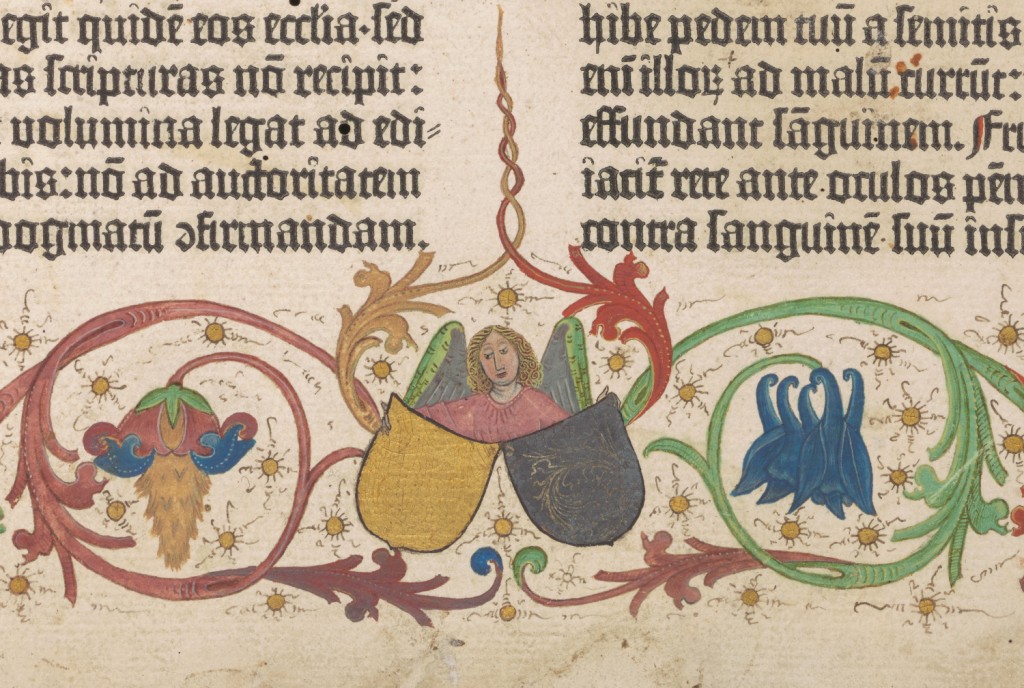 egit quidē eos eccľia·sed
as scripturas nō recipit:
volumina legat ad edi⸗
bis:nō ad auctoritatem
dogmatū ↄfirmandam.
hibe pedem tuū a semitis
em̄ illoꝝ ad malū currūt:
effundant sāguinem. Fru
iacit̄ rete ante oculos pēn
contra sanguinē suū insi